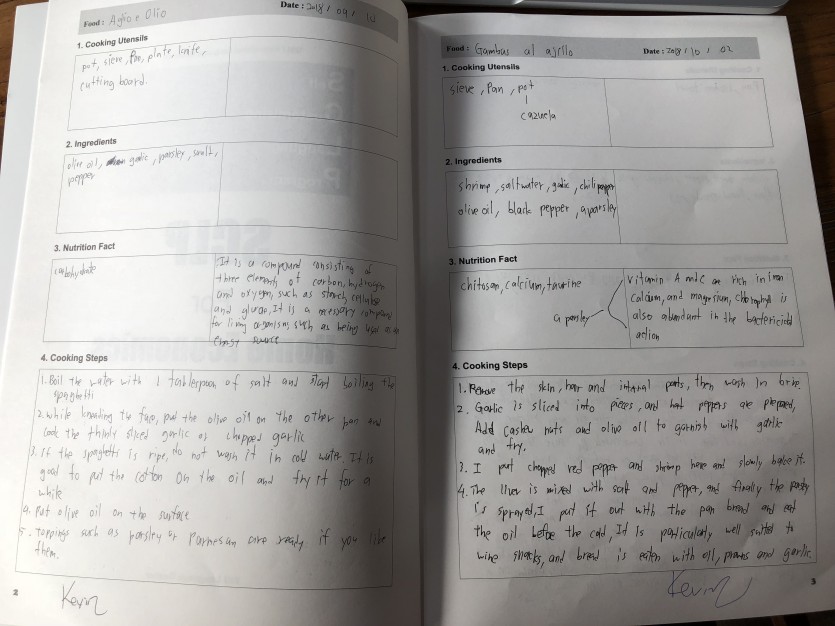 Food : Aglio e Olio
Date : 2018 / 09 / 10
1. Cooking Utensils
pot, sieve, Pan, plate, knife,
cutting board.
2. Ingredients
olive oil, garlic, parsley, salt,
pepper
3. Nutrition Fact
carbohydrate
It is a compound consisting of
three elements of carbon, hydrogen
and oxygen, such as starch, cellulose
and glucose. It is a necessary compound
for living organisms such as being used as an
source
4. Cooking Steps
1. Boil the water with 1 tablespoon of salt and start boiling the
spaghetti
2. while the face, put the olive oil on the other pan and
cook the thinly sliced garlic or chopped garlic
3. If the spaghetti is ripe, do not wash it in cold water. It is
good to put the cotton on the oil and fry it for a
while
4. Put olive oil on the surface
5. Toppings such as parsley or Parmesan are ready if you like
them.
Kevin
2
Food : Gambas al ajillo
Date : 2018 / 10 / 02
1. Cooking Utensils
sieve, Pan, pot
cazuela
2. Ingredients
shrimp, saltwater, garlic, chili pepper
olive oil, black pepper, a parsley
3. Nutrition Fact
chitosan, calcium, taurine
a parsley
Vitamin A and C are rich in iron
Calcium, and magnesium, chlorophyll is
also abundant in the bactericidal
action
4. Cooking Steps
1. Remove the skin, hair and internal parts, then wash in brine.
2. Garlic is sliced into pieces, and hot peppers are prepared,
Add cashew nuts and olive oil to garnish with garlic
and fry.
3. I put chopped red pepper and shrimp here and slowly bake it.
4. The liver is mixed with salt and pepper, and finally the parsley
is sprayed, I put it out with the pan bread and eat
the oil before the cold, It Is particularly well suited to
wine snacks, and bread is eaten with oil, prawns and garlic.
Kevin
3